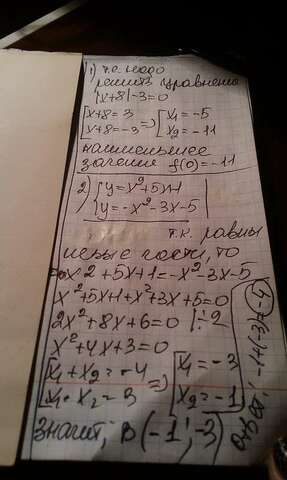 1) т.е. надо
решить уравнение
|x+8|-3=0
[x+8=3 => [x₁=-5
[x+8=-3 [x₂=-11
наименьшее
значение f(0)=-11
2) {y=x²+5x+1
{y=-x²-3x-5
т.к. равны
левые части, то
x²+5x+1=-x²-3x-5
x²+5x+1+x²+3x+5=0
2x²+8x+6=0 |÷2
x²+4x+3=0
[x₁+x₂=-4 => [x₁=-3
[x₁·x₂=3 [x₂=-1
значит, B(-1;-3)
Ответ: -1+(-3)=-4